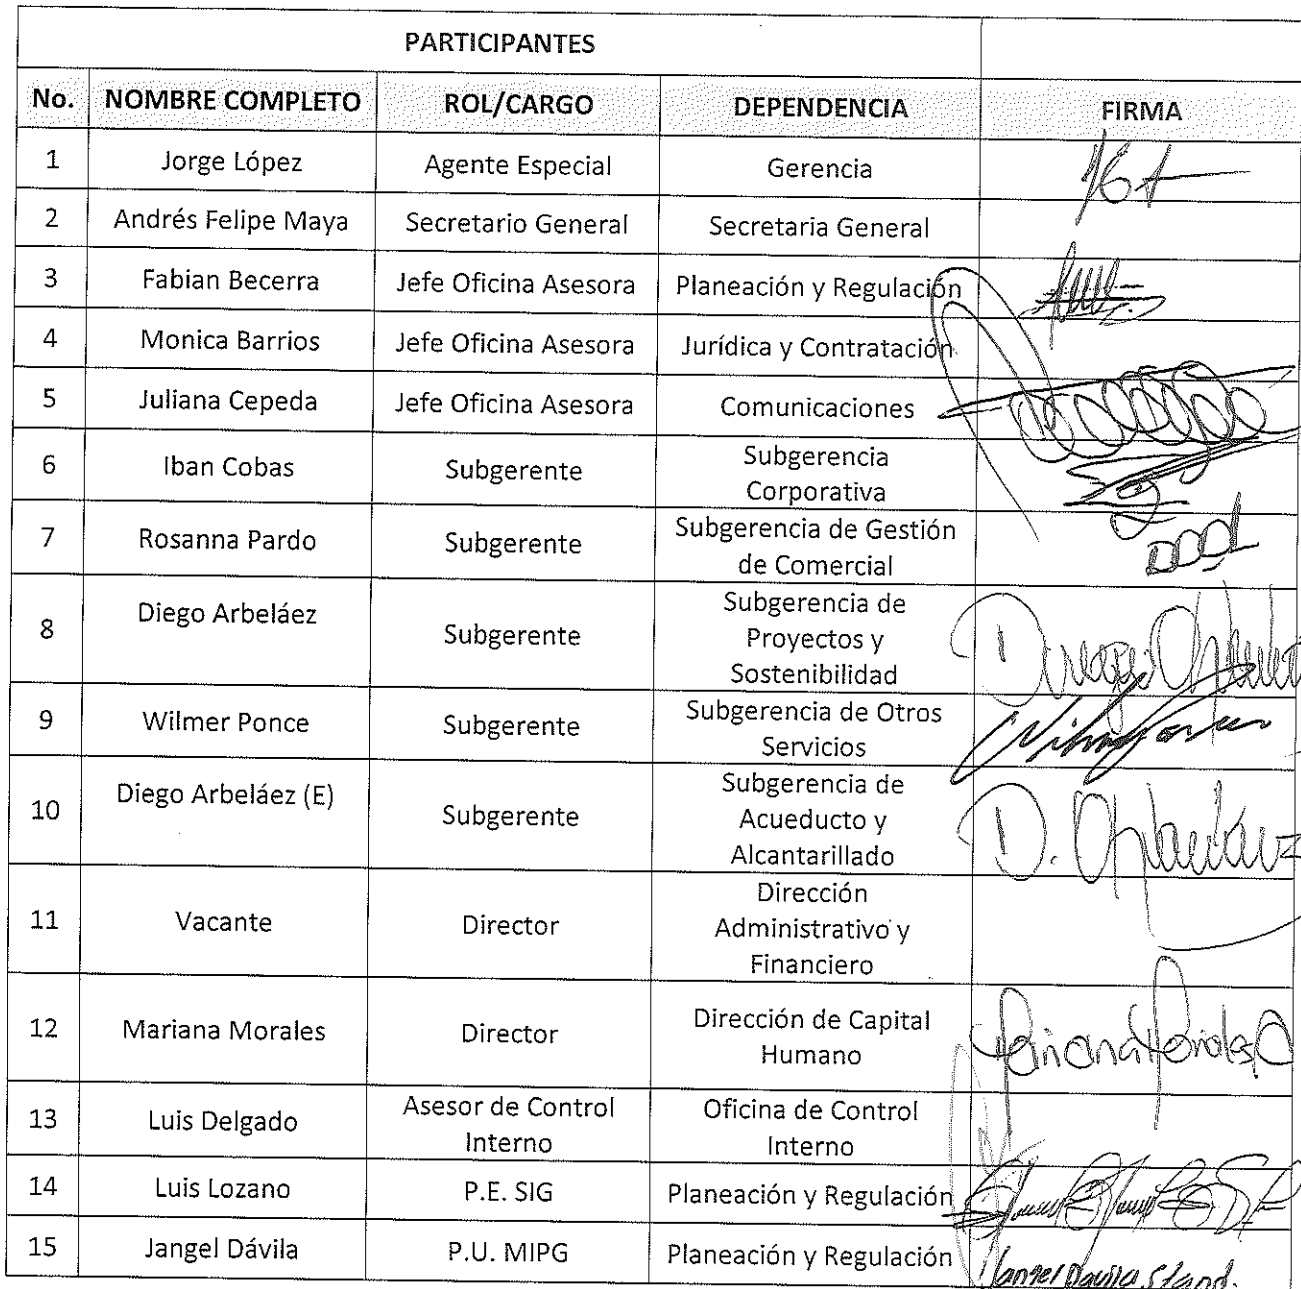 PARTICIPANTES
No. NOMBRE COMPLETO ROL/CARGO DEPENDENCIA FIRMA
1 Jorge López Agente Especial Gerencia
2 Andrés Felipe Maya Secretario General Secretaria General
3 Fabian Becerra Jefe Oficina Asesora Planeación y Regulación
4 Monica Barrios Jefe Oficina Asesora Jurídica y Contratación
5 Juliana Cepeda Jefe Oficina Asesora Comunicaciones
6 Iban Cobas Subgerente Subgerencia
Corporativa
7 Rosanna Pardo Subgerente Subgerencia de Gestión
de Comercial
8 Diego Arbeláez Subgerente Subgerencia de
Proyectos y
Sostenibilidad
9 Wilmer Ponce Subgerente Subgerencia de Otros
Servicios
10 Diego Arbeláez (E) Subgerente Subgerencia de
Acueducto y
Alcantarillado
D. Arbeláez
11 Vacante Director Dirección
Administrativo y
Financiero
12 Mariana Morales Director Dirección de Capital
Humano
Mariana Morales
13 Luis Delgado Asesor de Control
Interno Oficina de Control
Interno
14 Luis Lozano P.E. SIG Planeación y Regulación
15 Jangel Dávila P.U. MIPG Planeación y Regulación
Jangel Davila